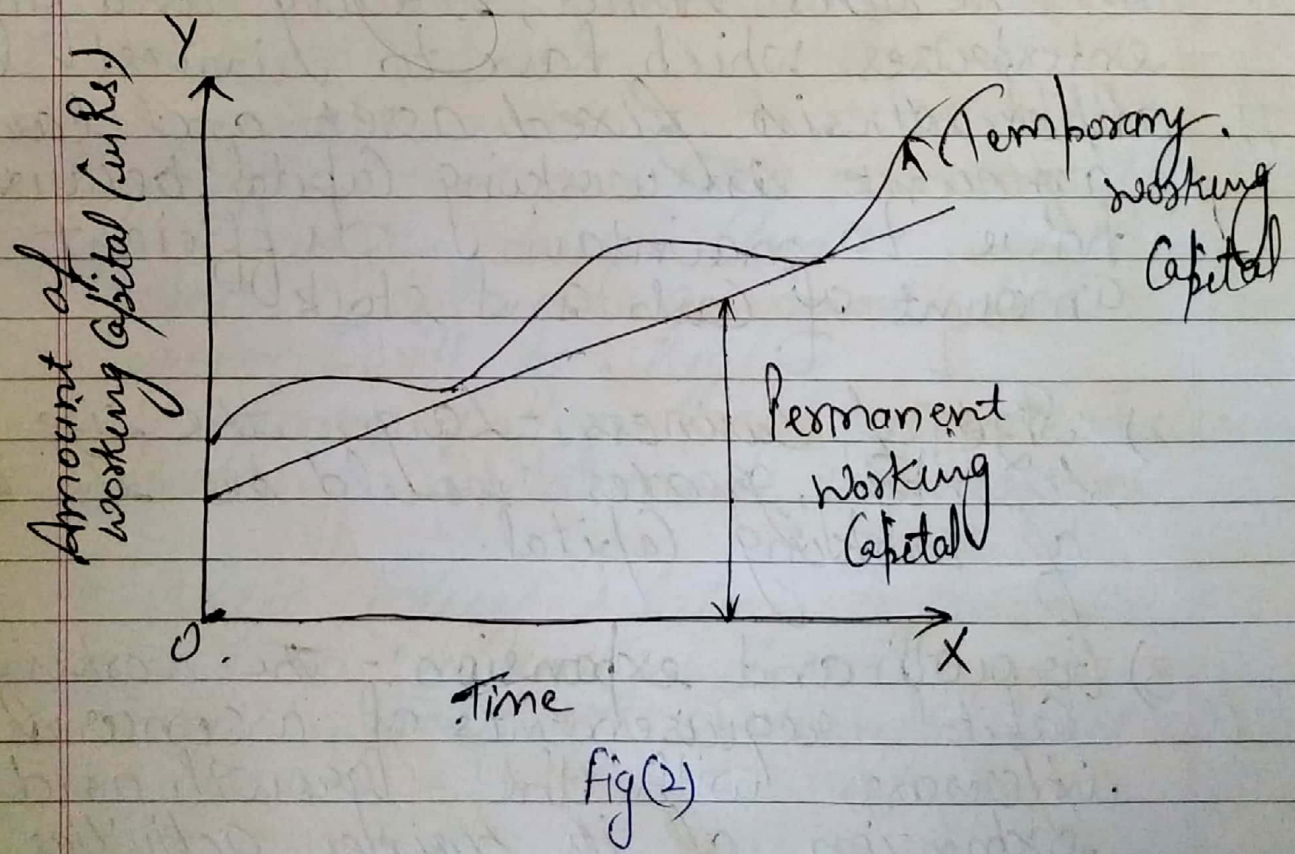 Y
Amount of
working Capital (in Rs.)
Temporary.
working
Capital
Permanent
working
Capital
O.
X
Time
fig(2)